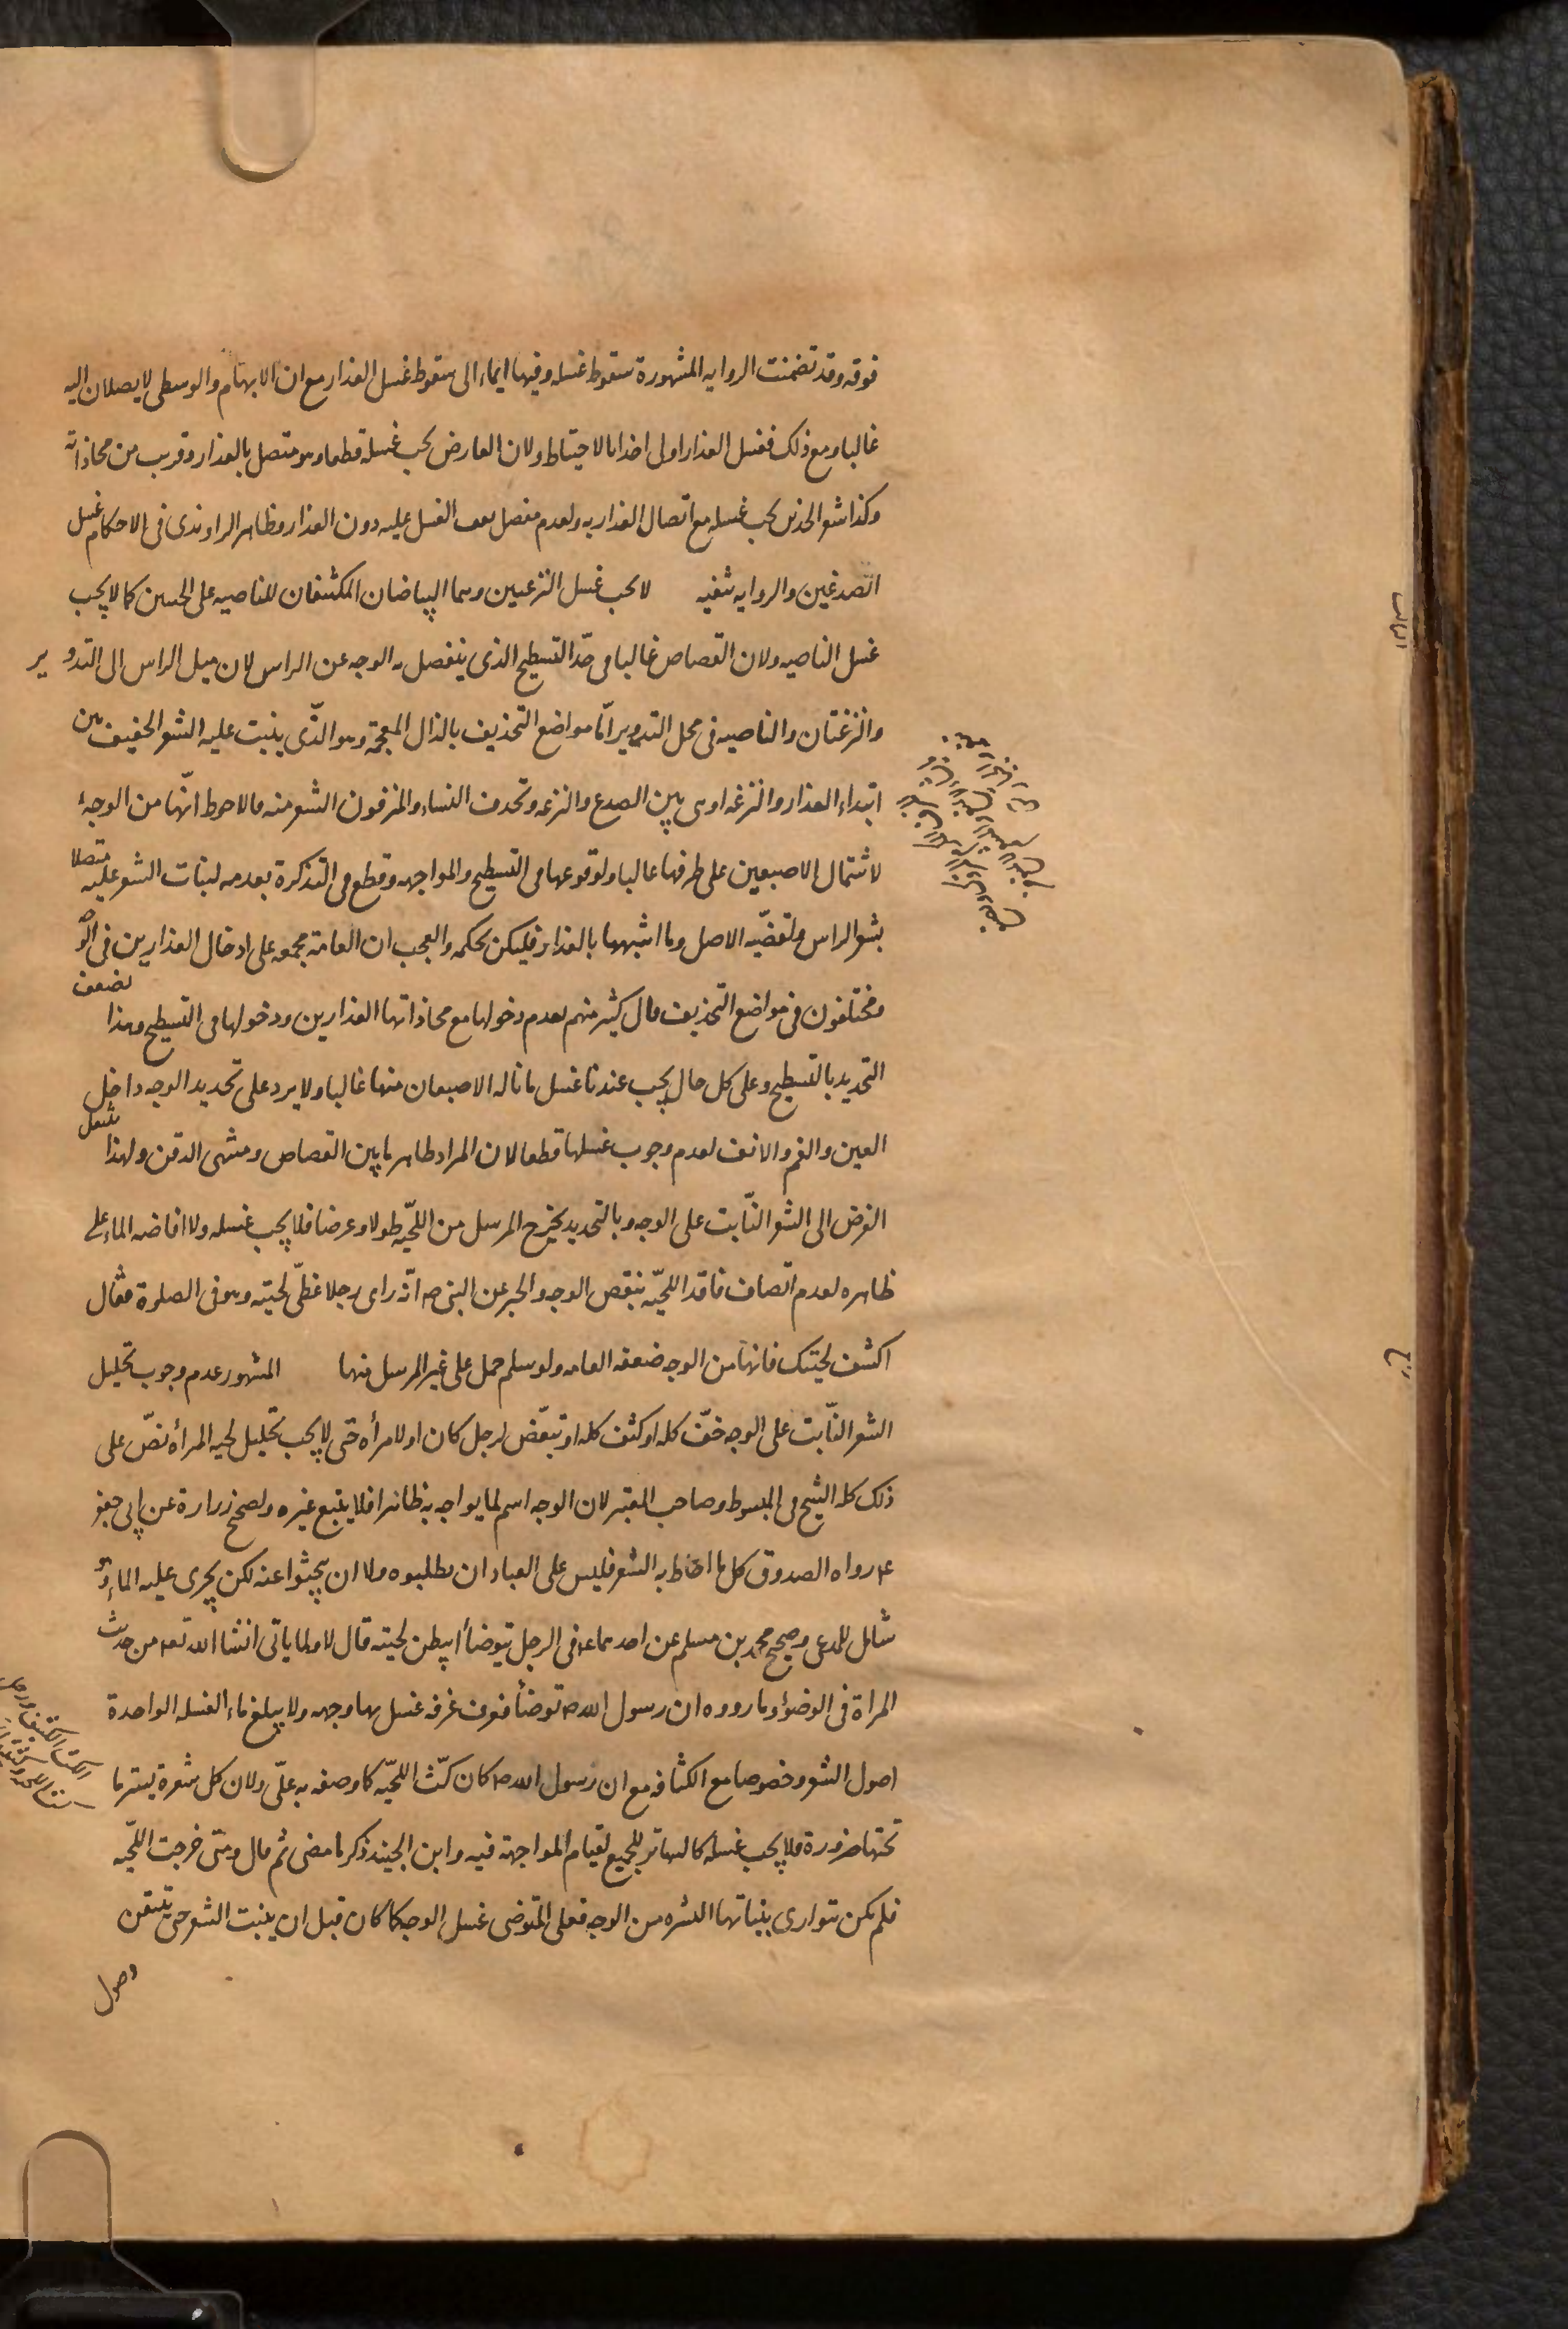 فوقه وقد تضمنت الروايه المشهورة سقوط غسله وفيها ايماء الى سقوط غسل العذار مع ان الابهام والوسطى لا يصلان اليه
غالبا ومع ذلك فغسل العذار اولى اخذا بالاحتياط ولان العارض يجب غسله قطعا وهو متصل بالعذار وقريب من محاذاته
وكذا شعر الخدين يجب غسله مع اتصال العذار به ولعدم مفصل يقف الغسل عليه دون العذار وظاهر الراوندى فى الاحكام غسل
الصدغين والروايه تنفيه لا يجب غسل النزعتين وهما البياضان المكتنفان للناصيه على الجبين كما لا يجب
غسل الناصيه ولان القصاص غالبا فى حدّ التسطيح الذى ينفصل به الوجه عن الراس لان ميل الراس الى التدوير
والنزعتان والناصيه فى محل التدوير امّا مواضع التحذيف بالذال المعجمة وهو الذّى ينبت عليه الشعر الخفيف بين
ابتداء العذار والنزعه او هى بين الصدغ والنزعه وتحذف النساء والمترفون الشعر منه فالاحوط انّها من الوجه
لاشتمال الاصبعين على طرفها غالبا ولوقوعها فى التسطيح والمواجهه وقطع فى التذكرة بعدمه لنبات الشعر عليه متصلا
بشعر الراس ولقضيّه الاصل وما اشبهها بالعذار فليكن بحكمه والعجب ان العامة مجمعه على ادخال العذارين فى الو
ومختلفون فى مواضع التحذيف قال كثير منهم بعدم دخولها مع محاذاتها العذارين ودخولها فى التسطيح وهذا يضعف
التحديد بالتسطيح وعلى كل حال يجب عندنا غسل ما ناله الاصبعان منها غالبا ولا يرد على تحديد الوجه داخل
العين والفم والانف لعدم وجوب غسلها قطعا لان المراد ظاهر ما بين القصاص ومنتهى الذقن ولهذا ينتقل
الفرض الى الشعر النّابت على الوجه وبالتحديد يخرج المرسل من اللحيّه طولا وعرضا فلا يجب غسله ولا افاضه الماء على
ظاهره لعدم اتّصاف فاقد اللحيّه بنقص الوجه والخبر عن النبى صه انّه راى رجلا غطّى لحيته وهو فى الصلوة فقال
اكشف لحيتك فانها من الوجه ضعفه العامه ولو سلم حمل على غير المرسل منها المشهور عدم وجوب تخليل
الشعر النّابت على الوجه خفّ كله او كثف كله او تبعّض لرجل كان او لامرأه حتى لا يجب تخليل لحيه المرأه نصّ على
ذلك كله الشيخ فى المبسوط وصاحب المعتبر لان الوجه اسم لما يواجه به ظاهرا فلا يتبع غيره ولصحيح زرارة عن ابى جعفر
ع رواه الصدوق كل ما احاط به الشعر فليس على العباد ان يطلبوه ولا ان يبحثوا عنه لكن يجرى عليه الماء وهو
شامل للمدعى وصحيح محمد بن مسلم عن احدهما ع فى الرجل يتوضأ ايبطن لحيته قال لا ولما ياتى انشا الله تعه من حديث
المراة فى الوضوء وما رووه ان رسول الله ص توضأ فغرف غرفه غسل بها وجهه ولا يبلغ ماء الغسله الواحدة
اصول الشعر وخصوصا مع الكثافه مع ان رسول الله ص كان كثّ اللحيّه كما وصفه به علّى ولان كل شعرة يستر ما
تحتها ضرورة فلا يجب غسله كالساتر للجميع لقيام المواجهة فيه وابن الجنيد ذكر ما مضى ثم قال ومتى خرجت اللحيّه
فلم يكن تتوارى بنباتها البشره من الوجه فعلى المتوضى غسل الوجه كما كان قبل ان ينبت الشعر حتى يتيقن
وصول